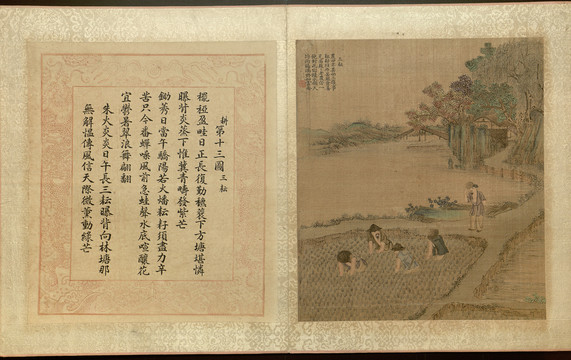 耕第十三圖 三耘
穲稏盈畦日正長復勤穮蓘下方塘堪憐
曝背炎蒸下惟冀青疇發紫芒
鋤莠日當午驕陽若火燔耘耔須盡力辛
苦只今番蟬噪風前急蛙聲水底喧釀花
宜鬱暑翠浪舞翩翩
朱火炎炎日午長三耘曝背向林塘那
無解慍傳風信天際微薰動綠芒
三耘